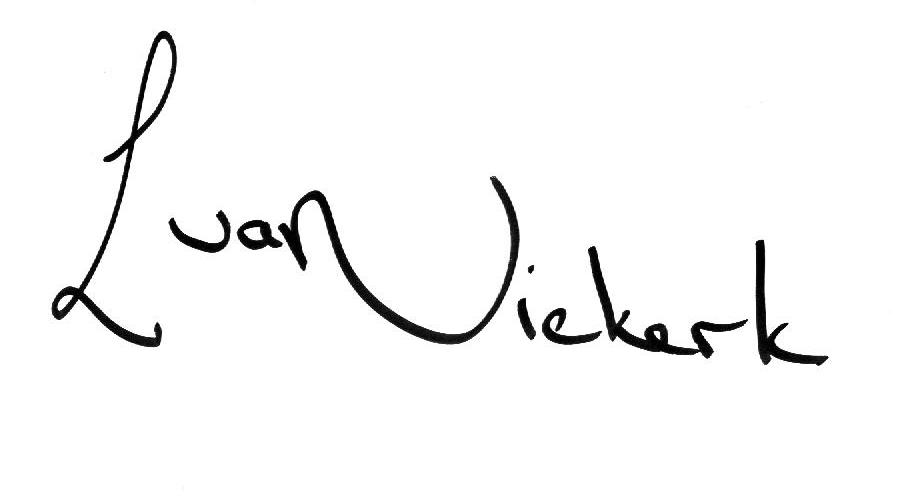 L van Niekerk